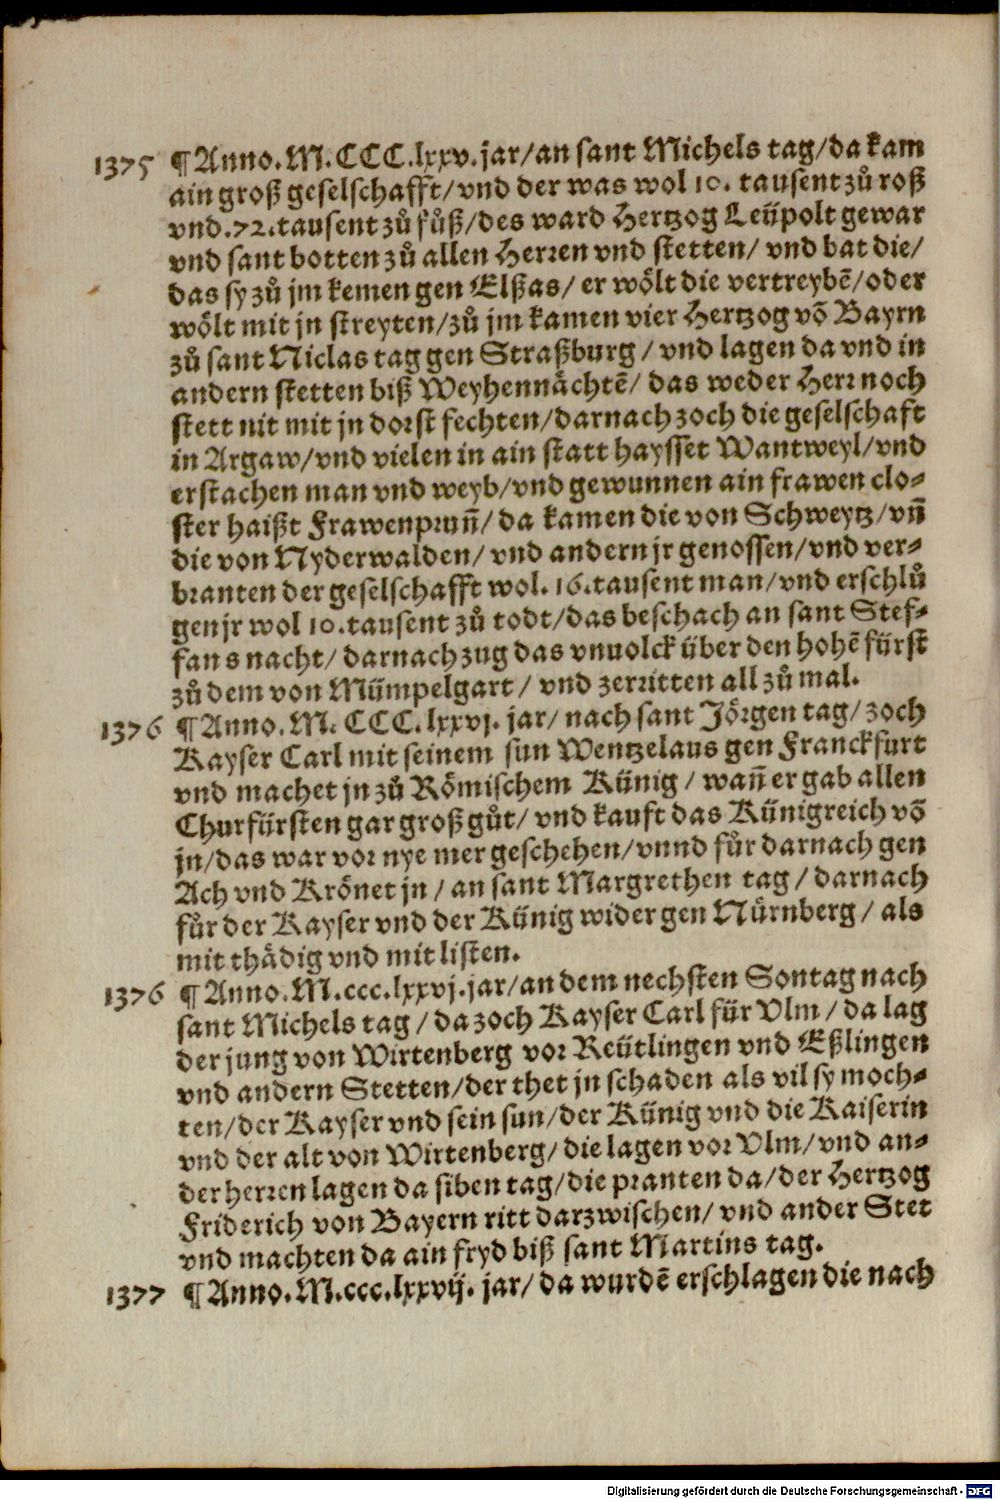 1375 ¶Anno. M. CCC. lxxv. jar/an sant Michels tag/da kam
ain groß geselschafft/vnd der was wol 10. tausent zů roß
vnd .72. tausent zů fůß/des ward Hertzog Leüpolt gewar
vnd sant botten zů allen Herren vnd stetten/ vnd bat die/
das sy zů jm kemen gen Elßas/ er wölt die vertreybē/oder
wölt mit jn streyten/zů jm kamen vier Hertzog vō Bayrn
zů sant Niclas tag gen Straßburg / vnd lagen da vnd in
andern stetten biß Weyhennächtē/ das weder Herr noch
stett nit mit jn dorst fechten/darnach zoch die geselschaft
in Argaw/vnd vielen in ain statt haysset Wantweyl/vnd
erstachen man vnd weyb/vnd gewunnen ain frawen clo-
ster haißt Frawenprun̄/ da kamen die von Schweytz/vn̄
die von Nyderwalden/ vnd andern jr genossen/vnd ver-
branten der geselschafft wol. 16. tausent man/vnd erschlů
gen jr wol 10. tausent zů todt/das beschach an sant Stef-
fans nacht/ darnach zug das vnuolck über den hohē fürst
zů dem von Mümpelgart / vnd zerritten all zů mal.
1376 ¶Anno. M. CCC. lxxvj. jar/ nach sant Jörgen tag/ zoch
Kayser Carl mit seinem sun Wentzelaus gen Franckfurt
vnd machet jn zů Römischem Künig / wan̄ er gab allen
Churfürsten gar groß gůt/ vnd kauft das Künigreich vō
jn/das war vor nye mer geschehen/vnnd fůr darnach gen
Ach vnd Krönet jn / an sant Margrethen tag / darnach
fůr der Kayser vnd der Künig wider gen Nürnberg / als
mit thädig vnd mit listen.
1376 ¶Anno. M. ccc. lxxvj. jar/an dem nechsten Sontag nach
sant Michels tag / da zoch Kayser Carl für Vlm / da lag
der jung von Wirtenberg vor Reütlingen vnd Eßlingen
vnd andern Stetten/der thet jn schaden als vil sy moch-
ten/der Kayser vnd sein sun/der Künig vnd die Kaiserin
vnd der alt von Wirtenberg/ die lagen vor Vlm/vnd an-
der herren lagen da siben tag/die pranten da/der Hertzog
Friderich von Bayern ritt darzwischen/ vnd ander Stet
vnd machten da ain fryd biß sant Martins tag.
1377 ¶Anno. M. ccc. lxxvij. jar/ da wurdē erschlagen die nach
Digitalisierung gefördert durch die Deutsche Forschungsgemeinschaft - DFG